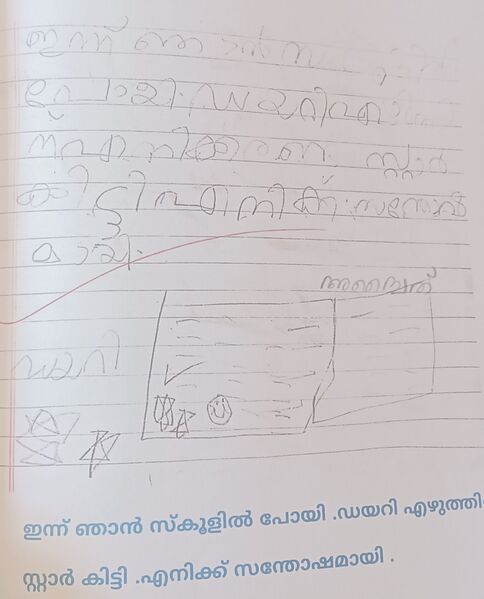 ഇന്ന് ഞാൻ
പോയി. ഡയറി
സ്റ്റാർ
കിട്ടി എനിക്ക് സന്തോഷ
മായി.
അദ്വൈത്
ഡയറി
ഇന്ന് ഞാൻ സ്കൂളിൽ പോയി .ഡയറി എഴുത്തി
സ്റ്റാർ കിട്ടി .എനിക്ക് സന്തോഷമായി .